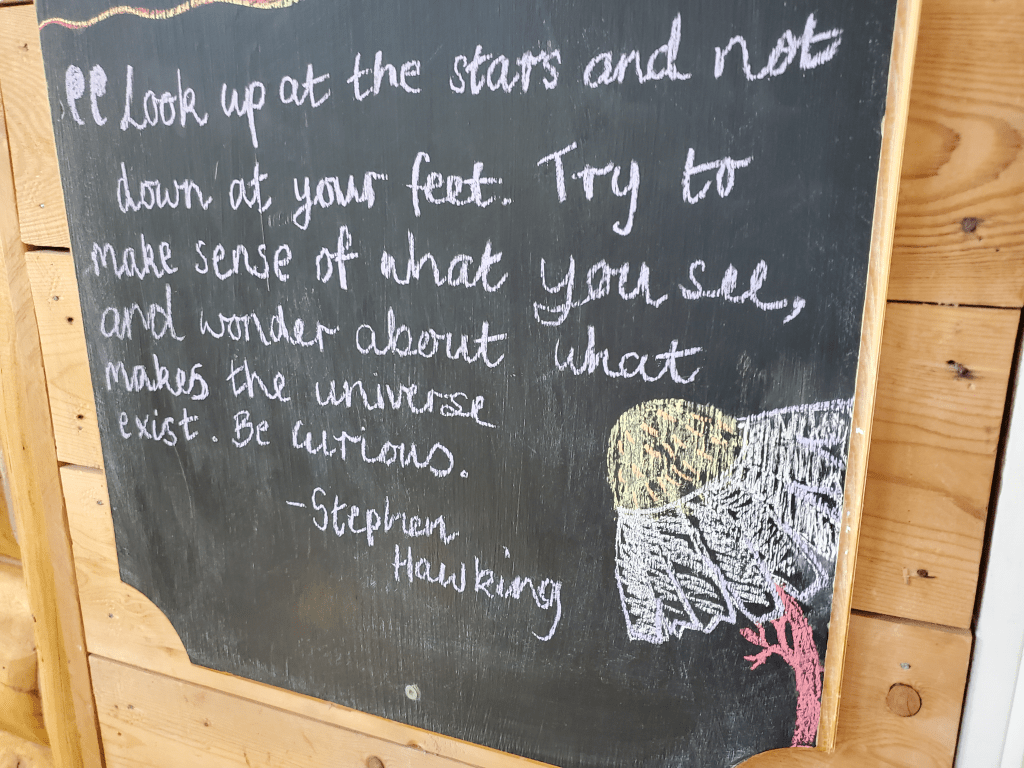 “Look up at the stars and not
down at your feet. Try to
make sense of what you see,
and wonder about what
makes the universe
exist. Be curious.
-Stephen
Hawking